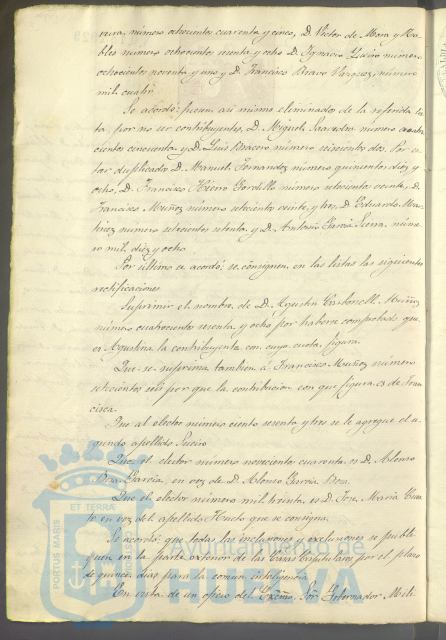 mera, número ochocientos cuarenta y cinco, D. Victor de Mora y Ro-
bles número ochocientos sesenta y ocho D. Ygnacio número
ochocientos noventa y uno y D. Francisco Bravo Vazquez, número
mil cuatro
Se acordó: fueran así mismo eliminados de la referida lis-
ta, por no ser contribuyentes, D. Miguel Saavedra número cuatro-
cientos cincuenta y D. Luis Bracero número seiscientos dos. Por es-
tar duplicados D. Manuel Fernandez número quinientos diez y
ocho, D. Francisco Hierro Gordillo número setecientos veinte, D.
Francisco Muñoz número setecientos veinte y tres, D. Eduardo Mar-
tinez número setecientos setenta y D. Antonio Garcia Sierra, núme-
ro mil diez y ocho
Por último se acordó: se consignen en las listas las siguientes
rectificaciones
Suprimir el nombre de D. Agustin Muñoz
número cuatrocientos sesenta y ocho por haberse comprobado que
es Agustina la contribuyente con cuya cuota figura.
Que se suprima tambien á Francisco Muñoz número
setecientos seis por que la contribucion con que figura es de Fran-
cisca
Que al elector número ciento sesenta y tres se le agregue el se-
gundo apellido
Que el elector número novecientos cuarenta es D. Alonso
Garcia, en vez de D. Alonso Garcia
Que el elector número mil treinta es D. Jose Maria
to en vez del apellido que se consigna.
Se acordó: que todas las inclusiones y exclusiones se publi-
quen en la parte exterior de las Casas Capitulares por el plazo
de quince dias para la comun inteligencia
En vista de un oficio del Excmo. Sor. Gobernador Mili-
PORTUS MARIS
ET TERRÆ
Ayuntamiento de
HUELVA